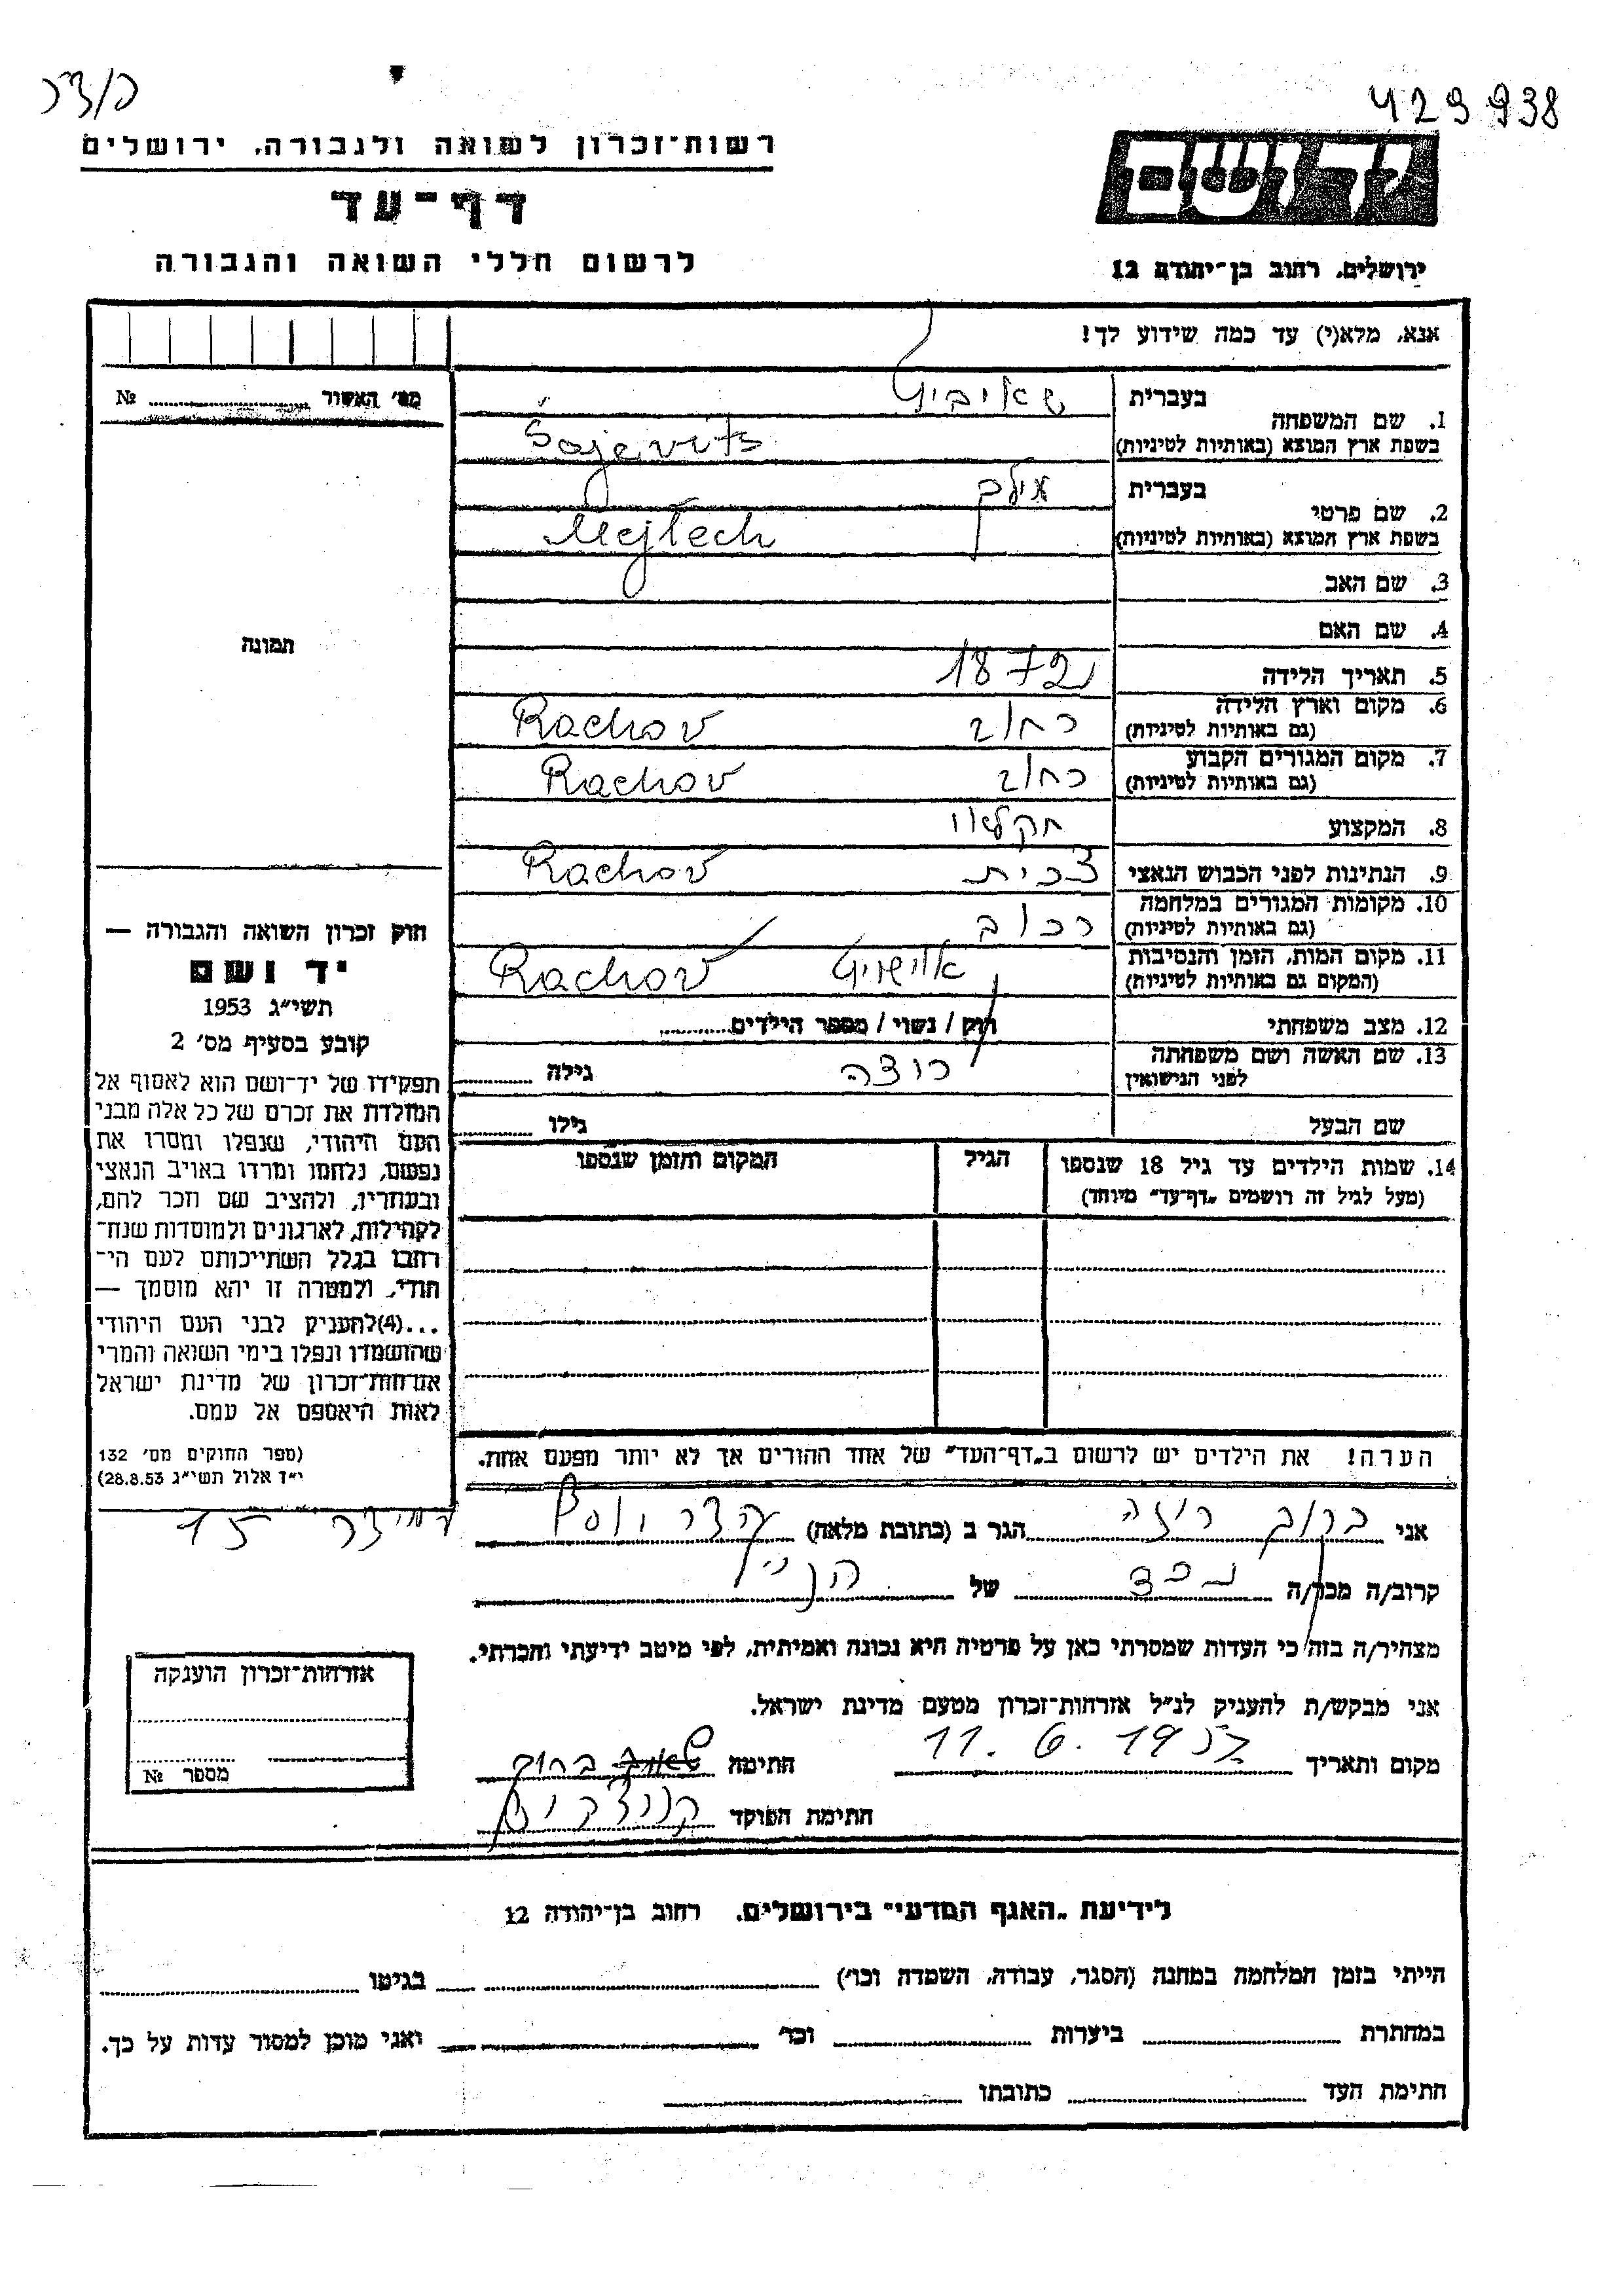 429938
רשות־זכרון לשואה ולגבורה, ירושלים
דף־עד
לרשום חללי השואה והגבורה
יד ושם
ירושלים, רחוב בן־יהודה 12
אנא, מלא(י) עד כמה שידוע לך!
מס׳ האשור № 
1. שם המשפחה
בעברית
בשפת ארץ המוצא (באותיות לטיניות) Šajevits
2. שם פרטי
בעברית
בשפת ארץ המוצא (באותיות לטיניות) Mejlech
3. שם האב
4. שם האם
5. תאריך הלידה 1872
6. מקום וארץ הלידה (גם באותיות לטיניות) רחוב Rachov
7. מקום המגורים הקבוע (גם באותיות לטיניות) רחוב Rachov
8. המקצוע חקלאי
9. הנתינות לפני הכבוש הנאצי צכית Rachov
10. מקומות המגורים במלחמה (גם באותיות לטיניות) רכוב
11. מקום המות, הזמן והנסיבות (המקום גם באותיות לטיניות) אוישויץ Rachov
12. מצב משפחתי רוק / נשוי / מספר הילדים
13. שם האשה ושם משפחתה לפני הנישואין רוצה גילה
שם הבעל גילו
14. שמות הילדים עד גיל 18 שנספו (מעל לגיל זה רושמים „דף־עד״ מיוחד)
הגיל
המקום והזמן שנספו
תמונה
חוק זכרון השואה והגבורה —
יד ושם
תשי״ג 1953
קובע בסעיף מס׳ 2
תפקידו של יד־ושם הוא לאסוף אל
המולדת את זכרם של כל אלה מבני
העם היהודי, שנפלו ומסרו את
נפשם, נלחמו ומרדו באויב הנאצי
ובעוזריו, ולהציב שם וזכר להם,
לקהילות, לארגונים ולמוסדות שנח־
רבו בגלל השתייכותם לעם הי־
הודי, ולמטרה זו יהא מוסמך —
...(4)להעניק לבני העם היהודי
שהושמדו ונפלו בימי השואה והמרי
אזרחות־זכרון של מדינת ישראל
לאות היאספם אל עמם.
(ספר החוקים מס׳ 132
י״ד אלול תשי״ג 28.8.53)
הערה! את הילדים יש לרשום ב„דף־העד״ של אחד ההורים אך לא יותר מפעם אחת.
אני ברוך רוזה הגר ב (כתובת מלאה) 15
קרוב/ה מכר/ה נכד של הנ״ל
מצהיר/ה בזה כי העדות שמסרתי כאן על פרטיה היא נכונה ואמיתית, לפי מיטב ידיעתי והכרתי.
אני מבקש/ת להעניק לנ״ל אזרחות־זכרון מטעם מדינת ישראל.
מקום ותאריך 11. 6. 1957 חתימה ברוך
חתימת הפוקד
אזרחות־זכרון הוענקה
מספר №
לידיעת „האגף המדעי״ בירושלים, רחוב בן־יהודה 12
הייתי בזמן המלחמה במחנה (הסגר, עבודה, השמדה וכו׳) בגיטו
במחתרת ביערות וכו׳ ואני מוכן למסור עדות על כך.
חתימת העד כתובתו